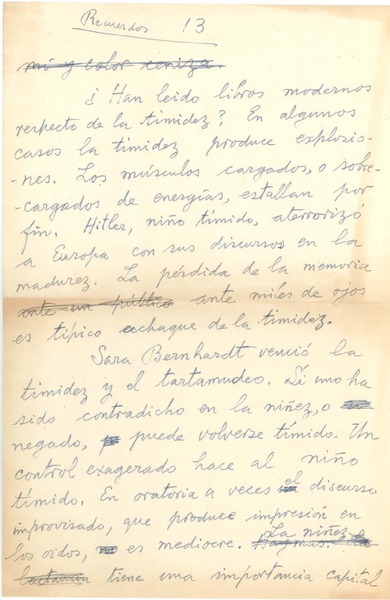 Recuerdos 13
mí y color ceniza.
¿Han leido libros modernos
respecto de la timidez? En algunos
casos la timidez produce explosio-
-nes. Los músculos cargados, o sobre-
-cargados de energías, estallan por
fin. Hitler, niño tímido, aterrorizó
a Europa con sus discursos en la
madurez. La pérdida de la memoria
ante un público ante miles de ojos
es típico achaque de la timidez.
Sara Bernhardt venció la
timidez y el tartamudeo. Si uno ha
sido contradicho en la niñez, o
negado, puede volverse tímido. Un
control exagerado hace al niño
tímido. En oratoria a veces el discurso
improvisado, que produce impresión en
los oidos, es mediocre. La niñez
lactancia tiene una importancia capital